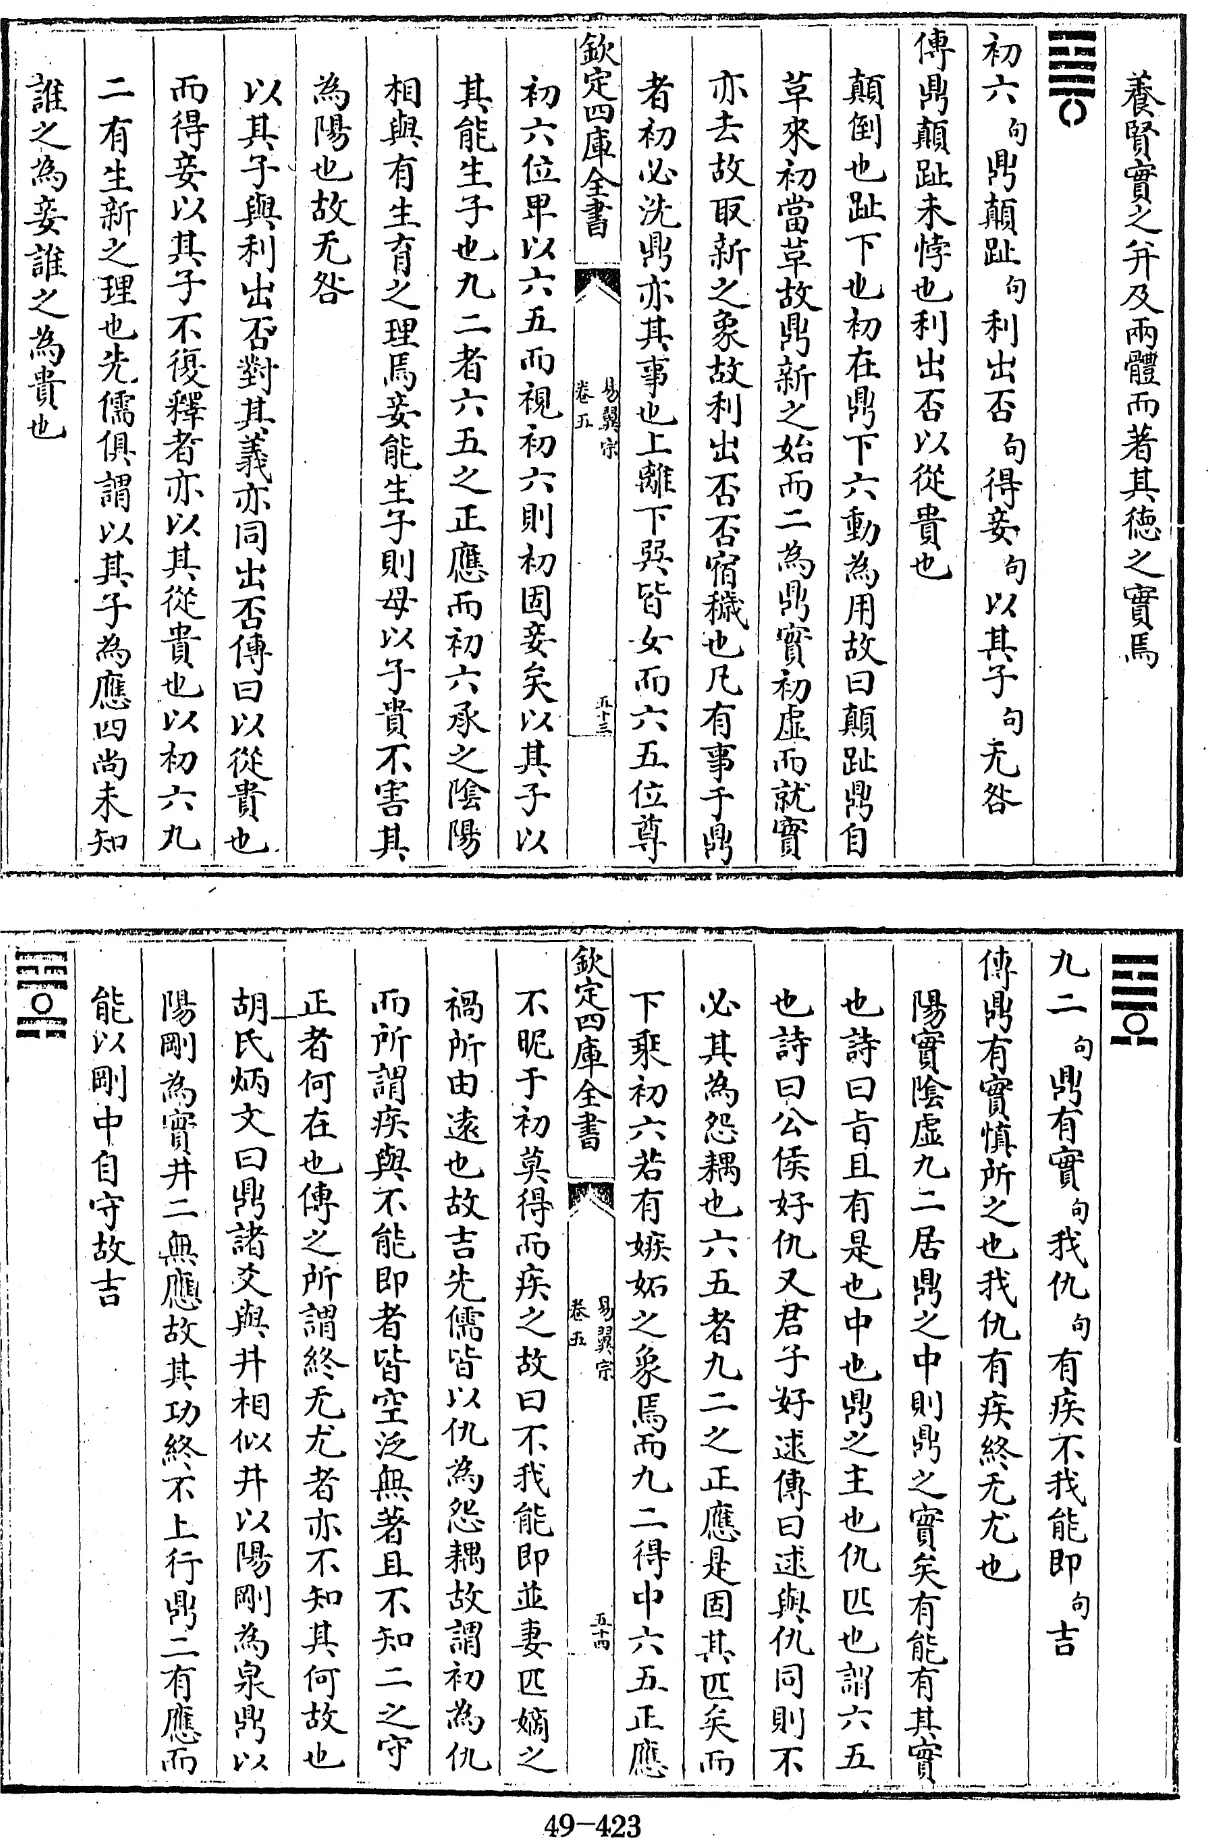 養賢實之弁及兩體而著其徳之實焉
初六句鼎顛趾句利出否句得妾句以其子句无咎
傳鼎顛趾未悖也利出否以從貴也
顛倒也趾下也初在鼎下六動為用故曰顛趾鼎自
革來初當革故鼎新之始而二為鼎實初虛而就實
亦去故取新之象故利出否否宿穢也凡有事于鼎
者初必洗鼎亦其事也上離下巽皆女而六五位尊
欽定四庫全書
易翼宗
卷五
五十三
初六位卑以六五而視初六則初固妾矣以其子以
其能生子也九二者六五之正應而初六承之陰陽
相與有生育之理焉妾能生子則母以子貴不害其
為陽也故无咎
以其子與利出否對其義亦同出否傳曰以從貴也
而得妾以其子不復釋者亦以其從貴也以初六九
二有生新之理也先儒俱謂以其子為應四尚未知
誰之為妾誰之為貴也
九二句鼎有實句我仇句有疾不我能即句吉
傳鼎有實慎所之也我仇有疾終无尤也
陽實陰虛九二居鼎之中則鼎之實矣有能有其實
也詩曰旨且有是也中也鼎之主也仇匹也謂六五
也詩曰公侯好仇又君子好逑傳曰逑與仇同則不
必其為怨耦也六五者九二之正應是固其匹矣而
下乗初六若有嫉妬之象焉而九二得中六五正應
欽定四庫全書
易翼宗
卷五
五十四
不昵于初莫得而疾之故曰不我能即並妻匹嫡之
禍所由逺也故吉先儒皆以仇為怨耦故謂初為仇
而所謂疾與不能即者皆空泛無著且不知二之守
正者何在也傳之所謂終无尤者亦不知其何故也
胡氏炳文曰鼎諸爻與井相似井以陽剛為泉鼎以
陽剛為實井二無應故其功終不上行鼎二有應而
能以剛中自守故吉
49-423